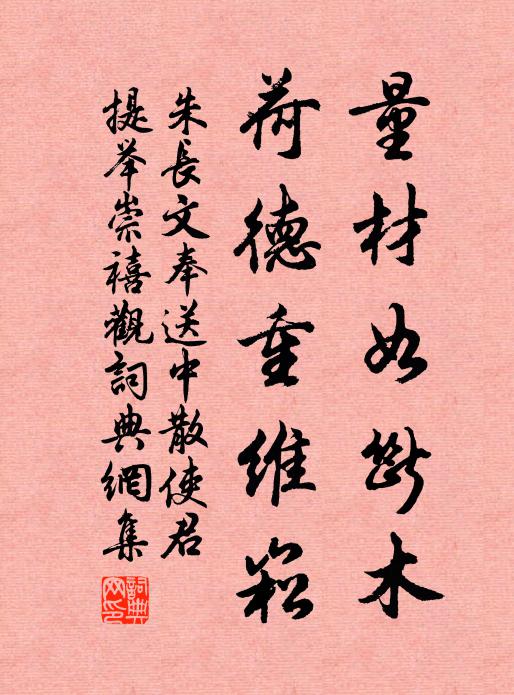 量材如斷木
荷德重維崧
朱長文奉送中散使君
提举崇禧觀詞典網集
詞典網印